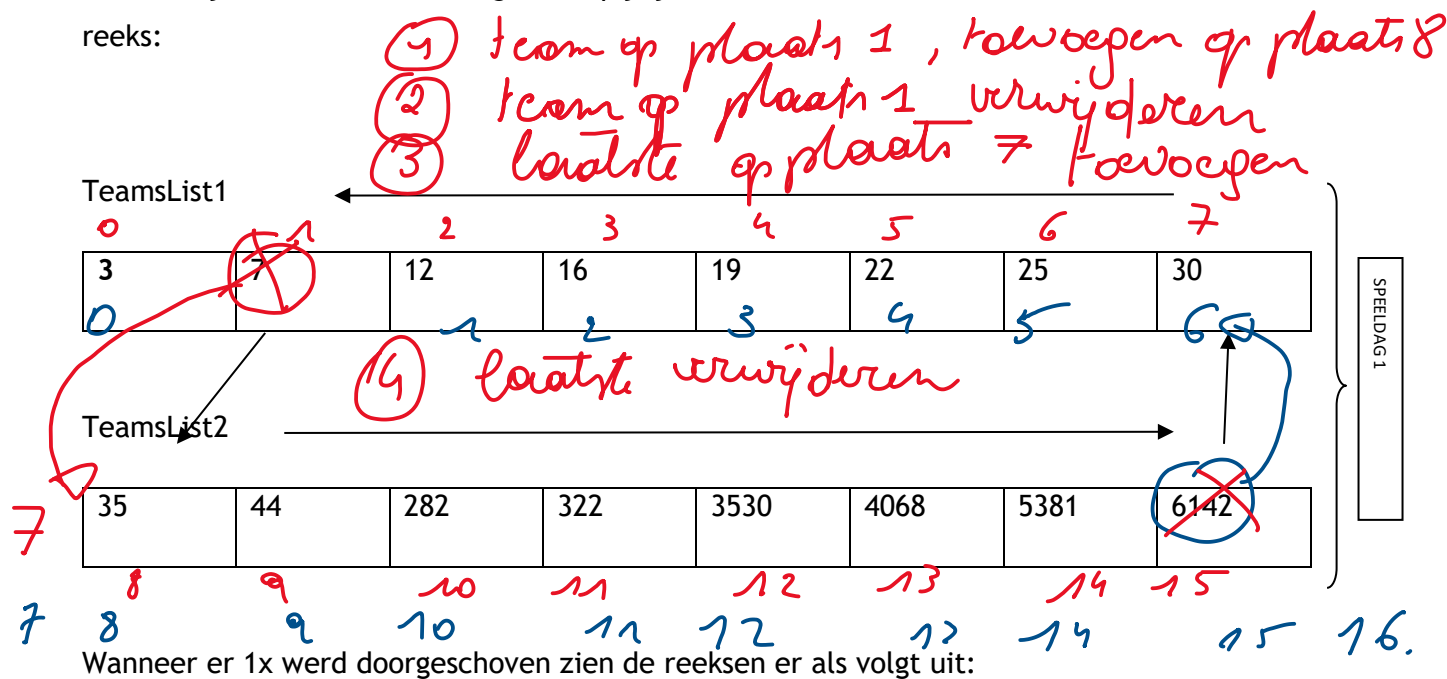 reeks:
① team op plaats 1, toevoegen op plaats 8
② team op plaats 1 verwijderen
③ laatste op plaats 7 toevoegen
TeamsList1
0 1 2 3 4 5 6 7
3 7 12 16 19 22 25 30
0 1 2 3 4 5 6
SPEELDAG 1
④ laatste verwijderen
TeamsList2
7 35 44 282 322 3530 4068 5381 6142
8 9 10 11 12 13 14 15
7 8 9 10 11 12 13 14 15 16.
Wanneer er 1x werd doorgeschoven zien de reeksen er als volgt uit: